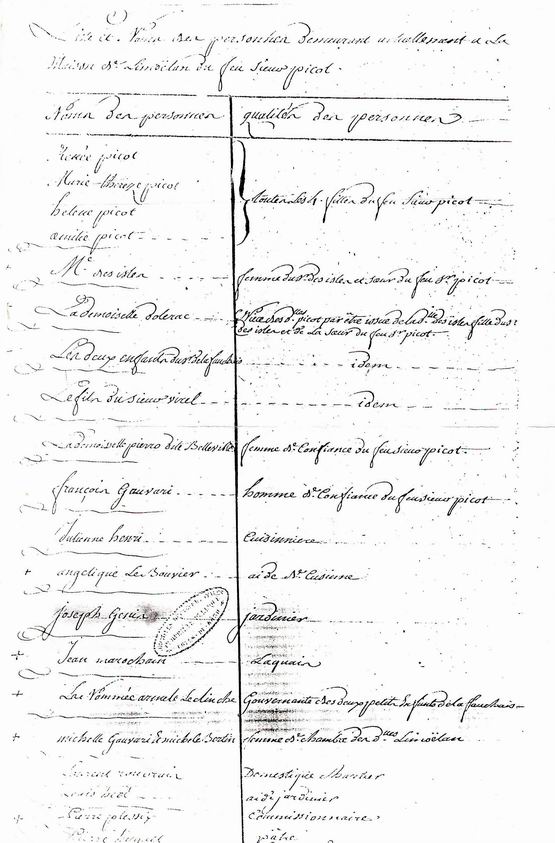 Liste et Noms des personnes Demeurant actuellement a La
Maison de Limöelan du feu Sieur picot.
Noms des personnes qualités des personnes
Renée picot
Marie thereze picot
helene picot
amilie picot
toutes les 4 filles du feu Sieur picot
Me des isles femme du sr des isles et sœur du feu sr picot
La demoiselle dolerac Niece des dlles picot par être issue de la dlle des isles fille du sr
des isles et de La sœur du feu sr picot
Les deux enfants du sr de la fauchais idem
Le fils du sieur virel idem
La demoiselle pierro dite Belleville femme de Confiance du feu sieur picot.
françois Gauvari homme de Confiance du feu sieur picot
Julienne henri Cuisinniere
+ angelique Le Bouvier aide de Cusinne
Joseph Genin jardinier
+ Jean marochain Laquais
+ La Nommée Gouvernante des deux petits enfants de la fauchais
+ michelle Gauvari & michele Bertin femme de chambre des dlles Limöelan
Laurent Domestique
Louis aide jardinier
+ Pierre plessix Commissionnaire
Pierre